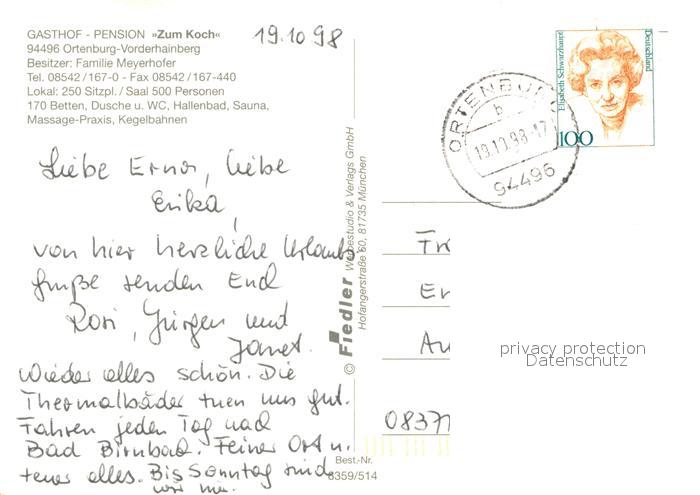 GASTHOF - PENSION »Zum Koch«
94496 Ortenburg-Vorderhainberg
Besitzer: Familie Meyerhofer
Tel. 08542/167-0 - Fax 08542/167-440
Lokal: 250 Sitzpl. / Saal 500 Personen
170 Betten, Dusche u. WC, Hallenbad, Sauna,
Massage-Praxis, Kegelbahnen
19.10.98
Liebe Erna, liebe
Erika,
von hier herzliche Urlaubs
grüße senden Euch
Rosi, Jürgen und
Janet.
Wieder alles schön. Die
Thermalbäder tuen uns gut.
Fahren jeden Tag nach
Bad Birnbach. Feiner Ort u.
teuer alles. Bis Sonntag sind
wir hier.
© Fiedler Werbestudio & Verlags GmbH
Hofangerstraße 60, 81735 München
Best.-Nr.
8359/514
Elisabeth Schwarzhaupt
Deutschland
100
ORTENBURG
b
19.10.98-17
94496
Fr
Er
Au
08371
privacy protection
Datenschutz